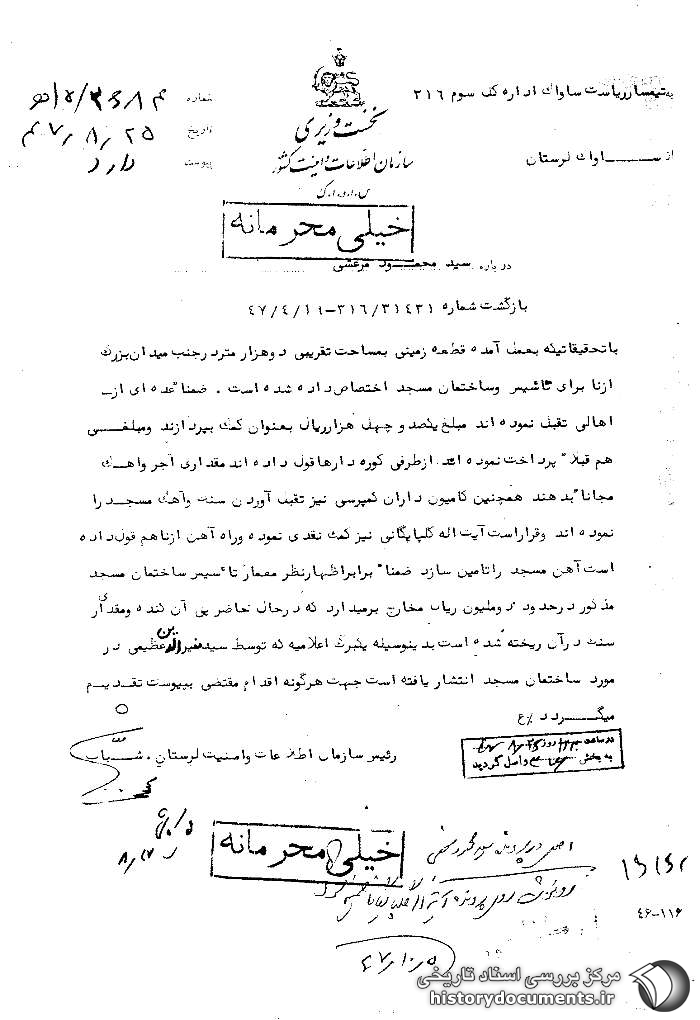 به تیمسار ریاست ساواک اداره کل سوم ۳۱۶
از ســـاواک لرستان
شماره
تاریخ ۴۷/۸/۲۵
پیوست دارد
نخست وزیری
سازمان اطلاعات و امنیت کشور
س.ا.و.ا.ک
خیلی محرمانه
درباره سید محمـــود مرعشی
بازگشت شماره ۳۱۶/۳۱۴۳۱-۴۷/۴/۱۹
باتحقیقاتیکه بعمل آمده قطعه زمینی بمساحت تقریبی دوهزار متردرجنب میدان بزرگ
ازنا برای تاسیس وساختمان مسجد اختصاص داده شده است . ضمنا" عده ای از
اهالی تقبل نموده اند مبلغ یکصد و چهل هزارریال بعنوان کمک بپردازند ومبلغـــی
هم قبلا" پرداخت نموده اند . ازطرفی کوره دارها قول داده اند مقداری آجر واهـــک
مجانا" بدهند همچنین کامیون داران کمپرسی نیز تقبل آوردن سنگ وآهک مسجد را
نموده اند وقراراست آیت اله گلپایگانی نیز کمک نقدی نموده وراه آهن ازنا هم قول داده
است آهن مسجد راتامین سازد ضمنا" برابراظهارنظر معمار تاسیس ساختمان مسجد
مذکور درحدود دوملیون ریال مخارج برمیدارد که درحال حاضر پی آن کنده ومقداری
سنگ درآن ریخته شده است بدینوسیله یکبرگ اعلامیه که توسط سید عظیمی در
مورد ساختمان مسجد انتشار یافته است جهت هرگونه اقدام مقتضی بپیوست تقدیـــم
میگـــردد
رئیس سازمان اطلاعات وامنیت لرستان . شـــباب
به بخش واصل گردید
خیلی محرمانه
۸/۲۷
اصل در پرونده سید محمود مرعشی
۴۶-۱۱۶
۴۷/۱۰/۵
مرکز بررسی اسناد تاریخی
historydocuments.ir